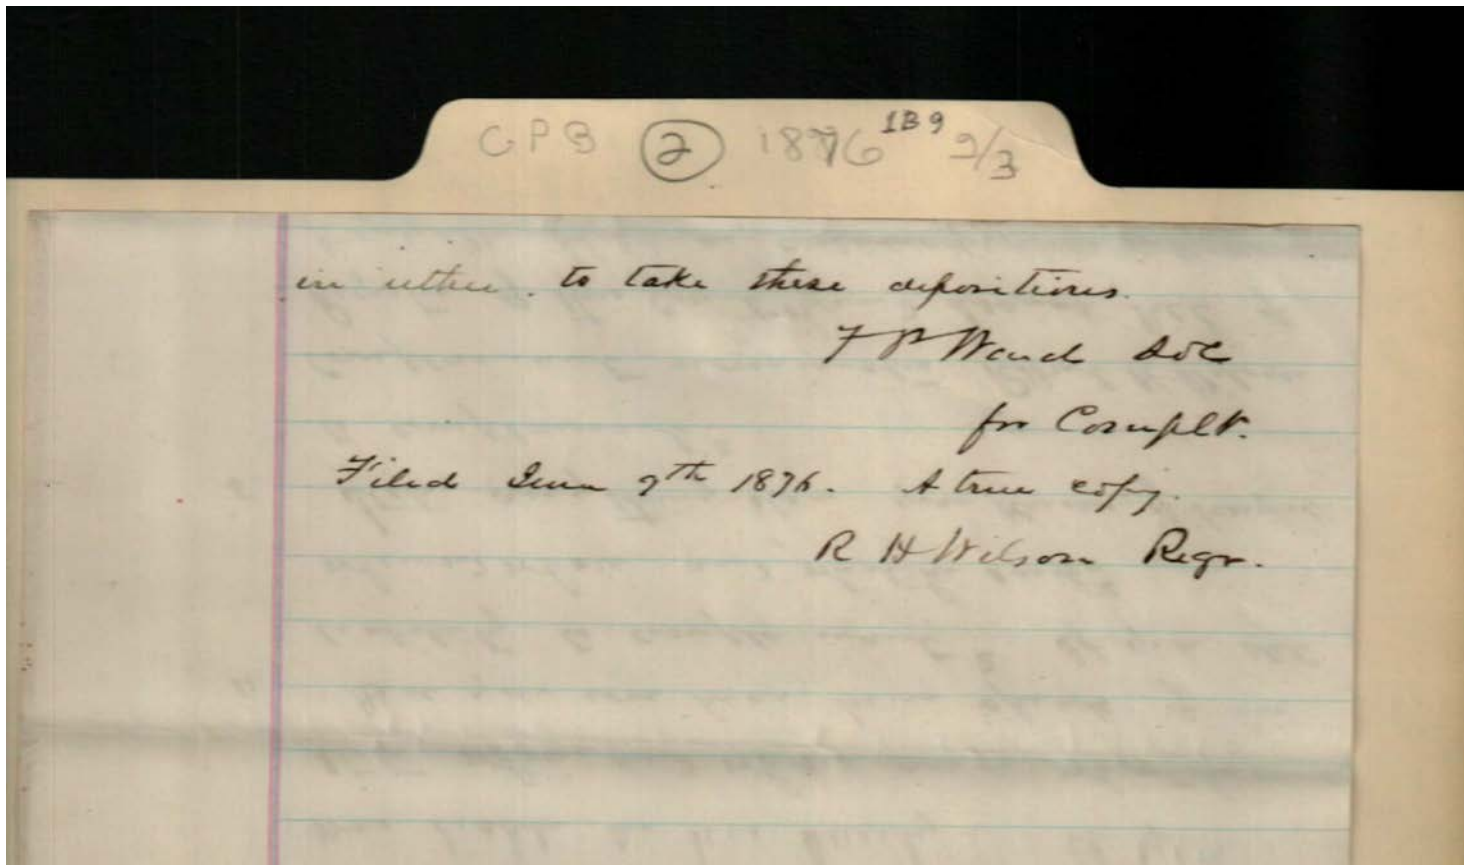 CPB 2 1876 1B9 2/3
in to take these depositions.
for Complt.
Filed June 9th 1876. A true copy.
R H Wilson Regr.